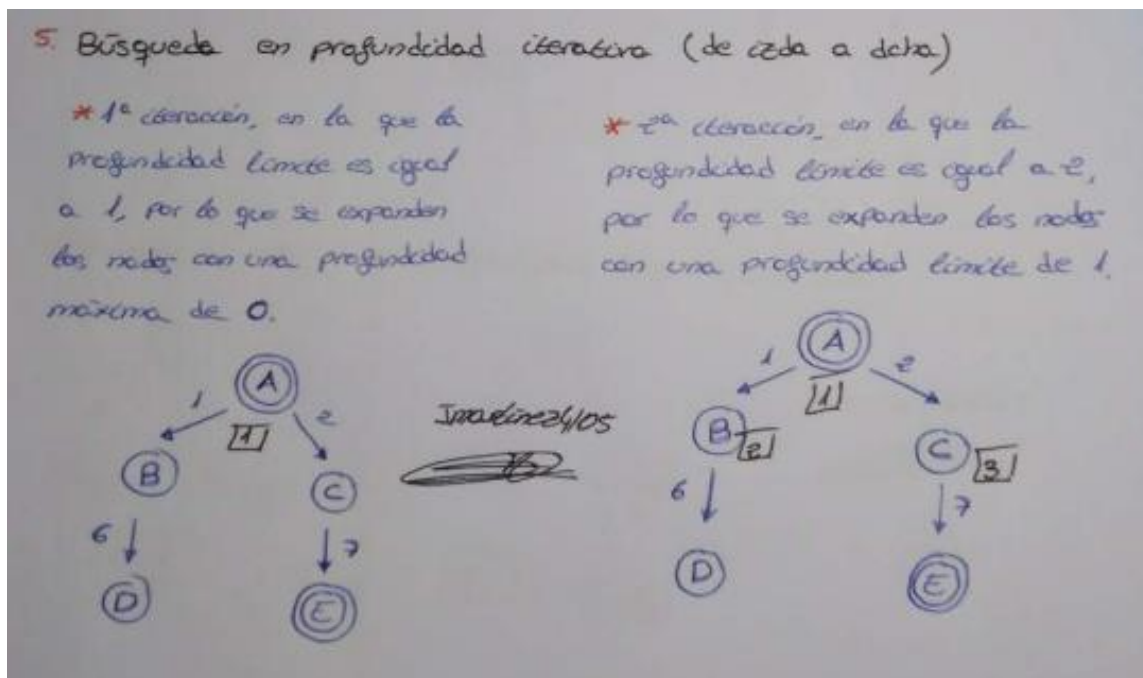 5. Búsqueda en profundidad iterativa (de izda a dcha)
* 1ª iteracción, en la que la
profundidad límite es igual
a 1, por lo que se expanden
los nodos con una profundidad
máxima de 0.
A
1
2
1
B
C
6
7
D
E
* 2ª iteracción, en la que la
profundidad límite es igual a 2,
por lo que se expanden los nodos
con una profundidad límite de 1.
A
1
2
1
B
2
C
3
6
7
D
E